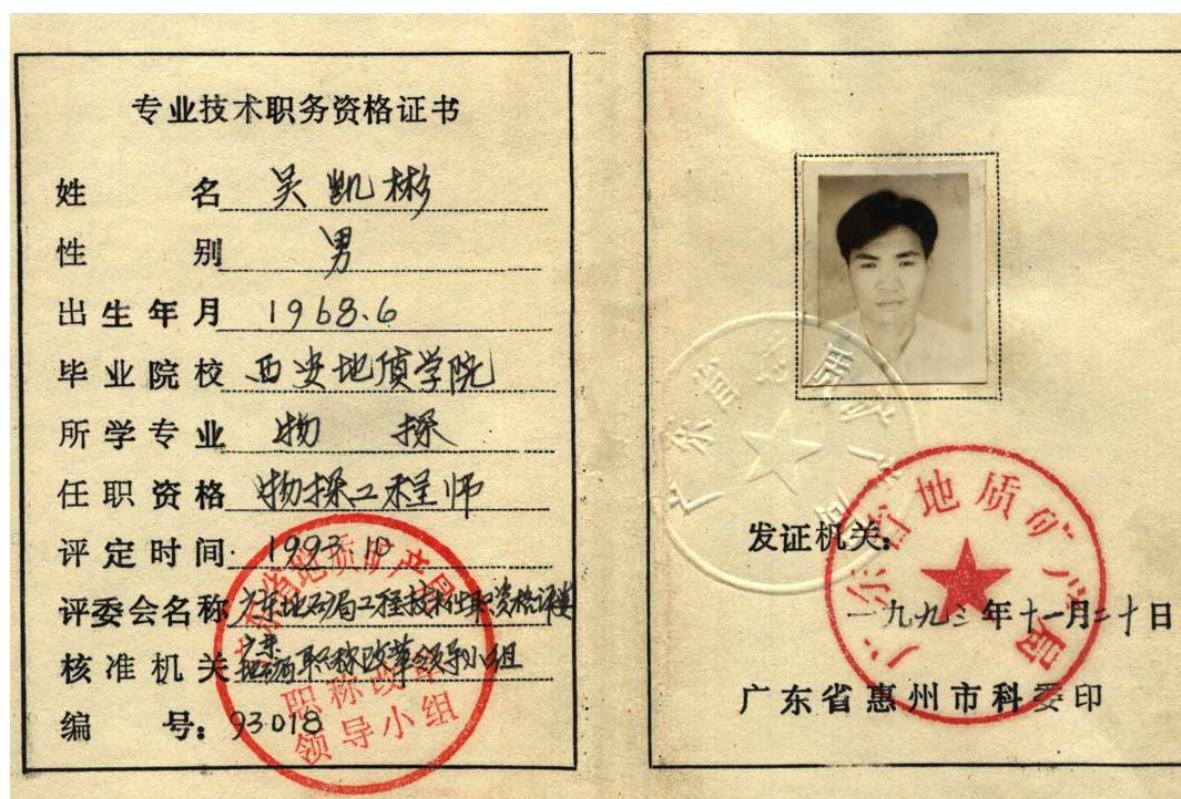 专业技术职务资格证书
姓 名 吴凯彬
性 别 男
出生年月 1968.6
毕业院校 西安地质学院
所学专业 物 探
任职资格 物探工程师
评定时间 1993.10
评委会名称 广东地矿局工程技术
核准机关 广东地矿局职称改革领导小组
编 号：93018
广东省地质矿产局
职称改革
领导小组
广东省地质矿产局
发证机关：
广东省地质矿产局
一九九三年十一月二十日
广东省惠州市科委印